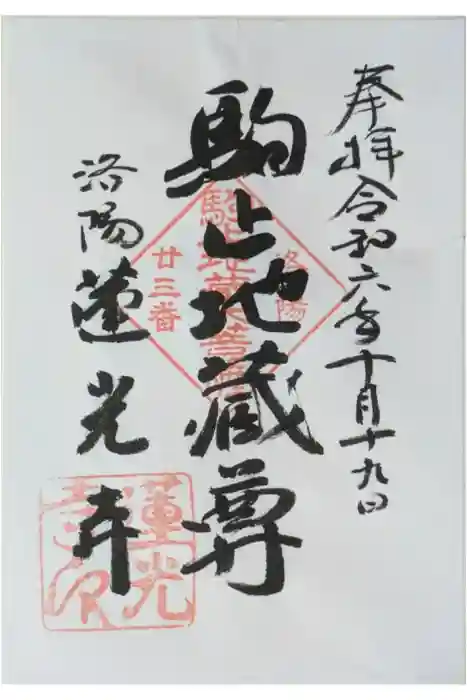 奉拝 令和六年十月十九日
駒止地蔵尊
洛陽
駒止地蔵菩薩
廿三番
洛陽 蓮光寺
蓮光